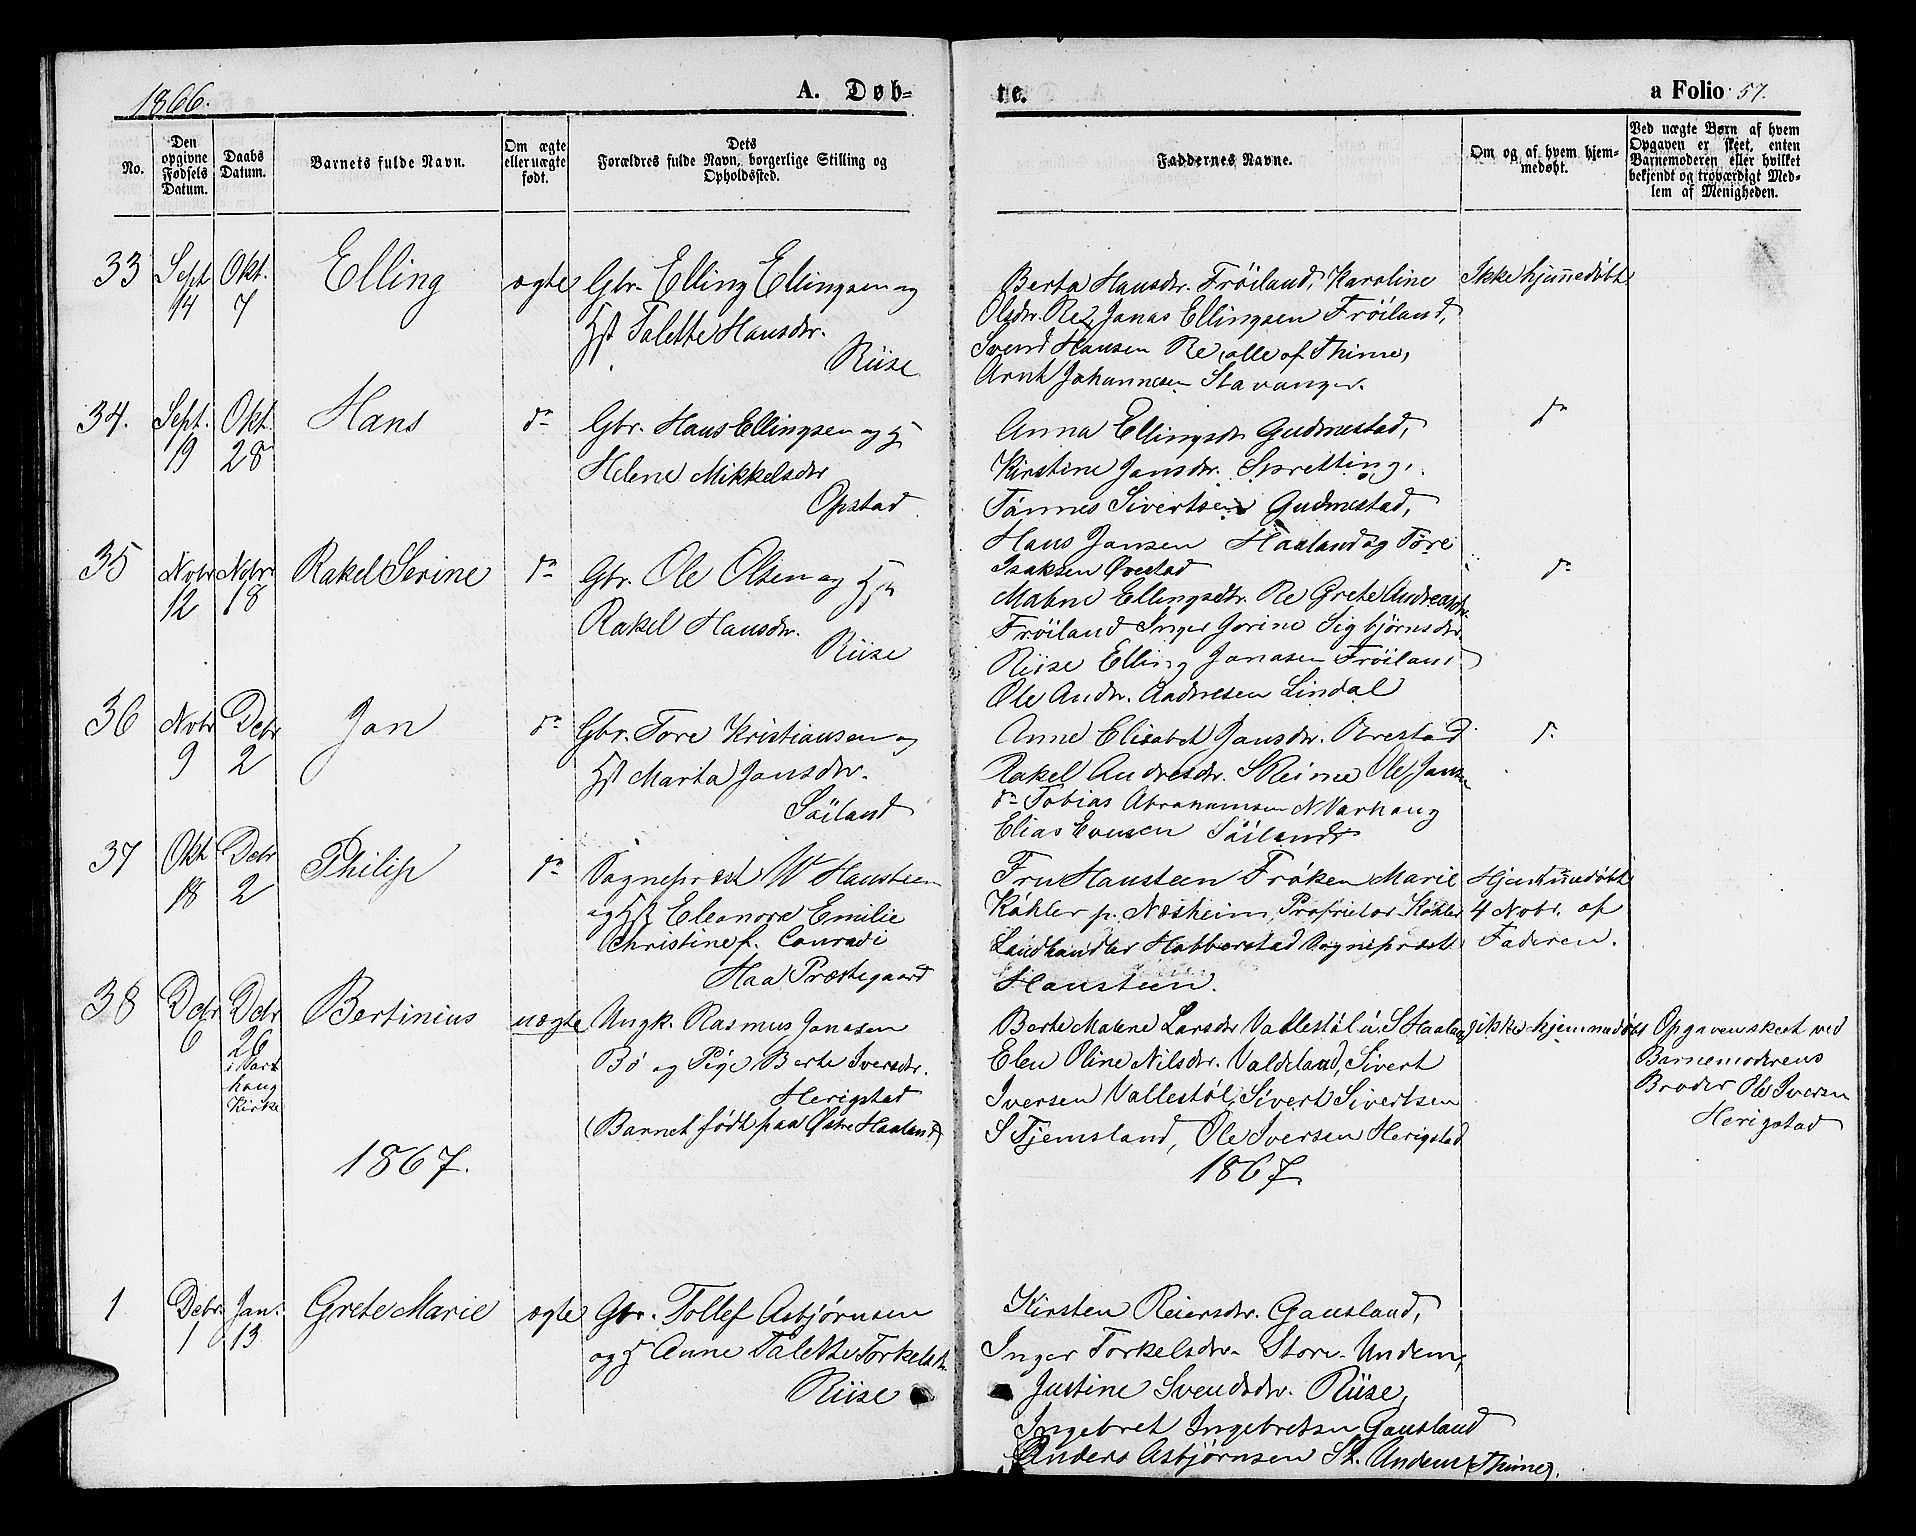 1866.
A. Døb-
te.
a Folio 57.
No.
Den opgivne Fødsels Datum.
Daabs Datum.
Barnets fulde Navn.
Om ægte eller uægte født.
Dets Forældres fulde Navn, borgerlige Stilling og Opholdssted.
Faddernes Navne.
Om og af hvem hjem-
medøbt.
Ved uægte Børn af hvem
Opgaven er skeet, enten
Barnemoderen eller hvilket
bekjendt og troværdigt Med-
lem af Menigheden.
33 Sept 14 Okt. 7 Elling ægte
Gbr. Elling Ellingsen og
Hst Talette Hansdtr.
Riise
Berta Hansdtr. Frøiland, Karoline
Olsdtr. Re, Jonas Ellingsen Frøiland,
Svend Hansen Re, alle af Thime,
Arnt Johannesen Stavanger.
Ikke hjemmedøbt
34. Sept. 19 Okt. 28 Hans do
Gbr. Hans Ellingsen og H
Helene Mikkelsdtr
Opstad
Anna Ellingsdtr Gudmestad,
Kirstine Jonsdtr. Spretting,
Tønnes Sivertsen Gudmestad,
Hans Jansen Haaland og Tore
Isaksen Øvestad
do
35 Novbr 12 Novbr 18 Rakel Serine do
Gbr. Ole Olsen og H
Rakel Hansdtr.
Riise
Malene Ellingsdtr. Re Grete Andreasdtr
Frøiland Inger Jorine Sigbjørnsdtr
Riise Elling Jonasen Frøiland
Ole Andr. Aadnesen Lindal
do
36 Novbr 9 Debr 2 Jon do
Gbr. Tore Kristiansen og
Hst Marta Jonsdtr.
Søiland
Anne Elisabet Jonsdtr.
Rakel Andresdtr. S Reime Ole Jonsen
do Tobias Abrahamsen N Varhaug
Elias Evensen Søiland
do
37 Okt 18 Debr 2 Philip do
Sognepræst W Hansteen
og Hst Eleonore Emilie
Christine f. Conradi
Haa Præstegaard
Fru Hansteen Frøken Marie
Køhler p. Næsheim, Proprietær Køhler
Landhandler Habberstad Sognepræst
Hansteen.
Hjemmedøbt
4 Novbr. af
Faderen.
38 Debr 6 Debr 26 i Varhaug Kirke Bertinius uægte
Ungk. Rasmus Jonasen
Bø og Pige Berte Iversdtr.
Herigstad
(Barnet født paa Østre Haaland)
Berte Malene Larsdtr Vallestøl u. S Haaland
Elen Oline Nilsdtr. Valdeland, Sivert
Iversen Vallestøl, Sivert Sivertsen
S Tjemsland, Ole Iversen Herigstad
ikke hjemmedøbt
Opgaven skeet ved
Barnemoderens
Broder Ole Iversen
Herigstad
1867.
1867
1 Debr. 1 Jan. 13 Grete Marie ægte
Gbr. Tollef Asbjørnsen
og H Anne Talette Torkelsdtr.
Riise
Kirsten Reiersdtr. Gausland,
Inger Torkelsdtr. Store-Undem,
Justine Svendsdtr. Riise,
Ingebret Ingebretsen Gausland
Anders Asbjørnsen St. Undem (Thime).